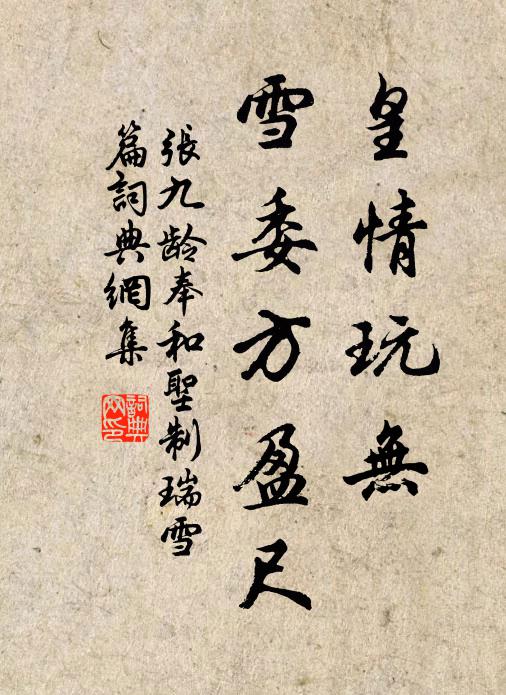 皇情玩無
雪委方盈尺
張九龄奉和聖制瑞雪
篇詞典網集
詞典
网印